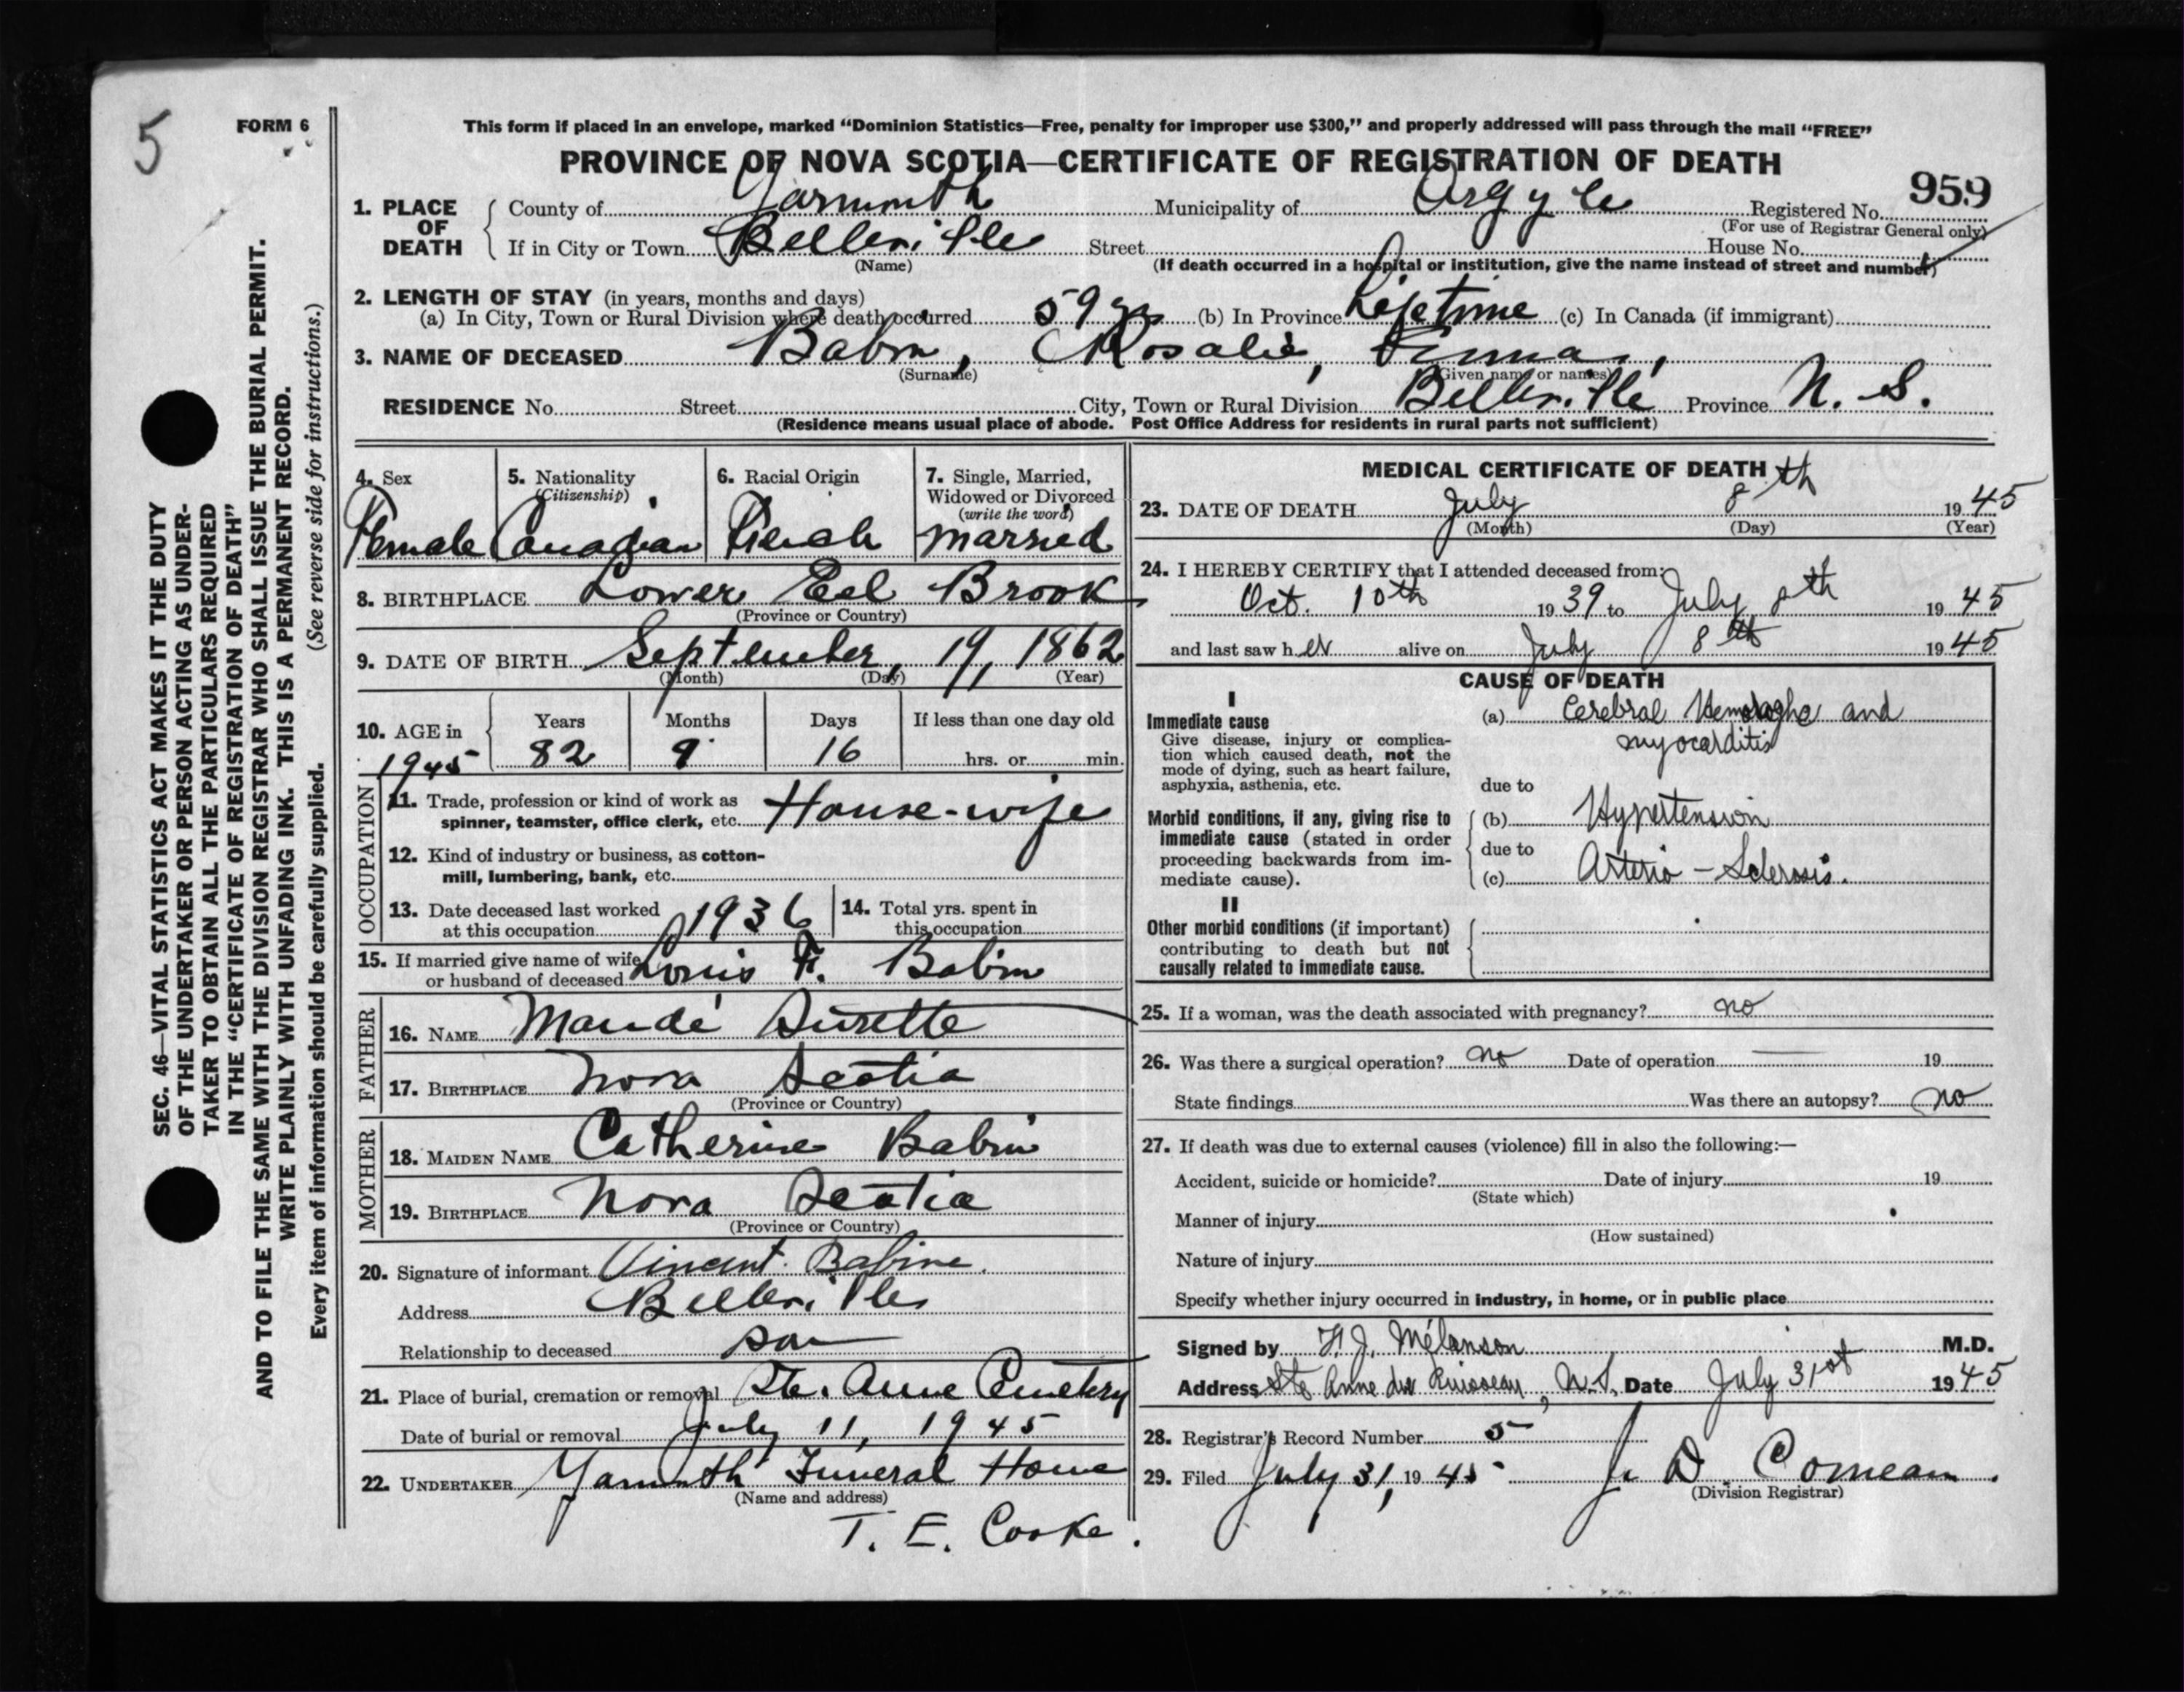 5
FORM 6
This form if placed in an envelope, marked “Dominion Statistics—Free, penalty for improper use $300,” and properly addressed will pass through the mail “FREE”
PROVINCE OF NOVA SCOTIA—CERTIFICATE OF REGISTRATION OF DEATH
959
1. PLACE OF DEATH
County of Yarmouth Municipality of Argyle Registered No.
(For use of Registrar General only)
If in City or Town Belleville Street House No.
(Name) (If death occurred in a hospital or institution, give the name instead of street and number)
2. LENGTH OF STAY (in years, months and days)
(a) In City, Town or Rural Division where death occurred 59 yrs (b) In Province Lifetime (c) In Canada (if immigrant)
3. NAME OF DECEASED Babin, Rosalie,
(Surname) (Given name or names)
RESIDENCE No. Street City, Town or Rural Division Belleville Province N. S.
(Residence means usual place of abode. Post Office Address for residents in rural parts not sufficient)
4. Sex
Female
5. Nationality
(Citizenship)
Canadian
6. Racial Origin
French
7. Single, Married,
Widowed or Divorced
(write the word)
married
8. BIRTHPLACE Lower Eel Brook
(Province or Country)
9. DATE OF BIRTH September, 19, 1862
(Month) (Day) (Year)
10. AGE in
1945
Years Months Days If less than one day old
82 9 16 hrs. or min.
OCCUPATION
11. Trade, profession or kind of work as
spinner, teamster, office clerk, etc. House-wife
12. Kind of industry or business, as cotton-
mill, lumbering, bank, etc.
13. Date deceased last worked
at this occupation 1936
14. Total yrs. spent in
this occupation
15. If married give name of wife
or husband of deceased Louis F. Babin
FATHER
16. NAME Mandé Surette
17. BIRTHPLACE Nova Scotia
(Province or Country)
MOTHER
18. MAIDEN NAME Catherine Babin
19. BIRTHPLACE Nova Scotia
(Province or Country)
20. Signature of informant Vincent Babine.
Address Belleville
Relationship to deceased son
21. Place of burial, cremation or removal Ste. Anne Cemetery
Date of burial or removal July 11, 1945
22. UNDERTAKER Yarmouth Funeral Home
(Name and address)
T. E. Cooke.
MEDICAL CERTIFICATE OF DEATH
23. DATE OF DEATH July 8th 1945
(Month) (Day) (Year)
24. I HEREBY CERTIFY that I attended deceased from:
Oct. 10th 1939 to July 8th 1945
and last saw her alive on July 8th 1945
CAUSE OF DEATH
I
Immediate cause
Give disease, injury or complica-
tion which caused death, not the
mode of dying, such as heart failure,
asphyxia, asthenia, etc.
(a) Cerebral Hemoraghe and
myocarditis
due to
Morbid conditions, if any, giving rise to
immediate cause (stated in order
proceeding backwards from im-
mediate cause).
(b) Hypertension
due to
(c) Arterio-Sclerosis.
II
Other morbid conditions (if important)
contributing to death but not
causally related to immediate cause.
25. If a woman, was the death associated with pregnancy? no
26. Was there a surgical operation? no Date of operation — 19
State findings Was there an autopsy? no
27. If death was due to external causes (violence) fill in also the following:—
Accident, suicide or homicide? Date of injury 19
(State which)
Manner of injury
(How sustained)
Nature of injury
Specify whether injury occurred in industry, in home, or in public place
Signed by Mélanson M.D.
Address Ste Anne du Ruisseau, N.S. Date July 31st 1945
28. Registrar's Record Number 5
29. Filed July 31, 1945 D. Comeau.
(Division Registrar)
SEC. 46—VITAL STATISTICS ACT MAKES IT THE DUTY
OF THE UNDERTAKER OR PERSON ACTING AS UNDER-
TAKER TO OBTAIN ALL THE PARTICULARS REQUIRED
IN THE “CERTIFICATE OF REGISTRATION OF DEATH”
AND TO FILE THE SAME WITH THE DIVISION REGISTRAR WHO SHALL ISSUE THE BURIAL PERMIT.
WRITE PLAINLY WITH UNFADING INK. THIS IS A PERMANENT RECORD.
Every item of information should be carefully supplied. (See reverse side for instructions.)